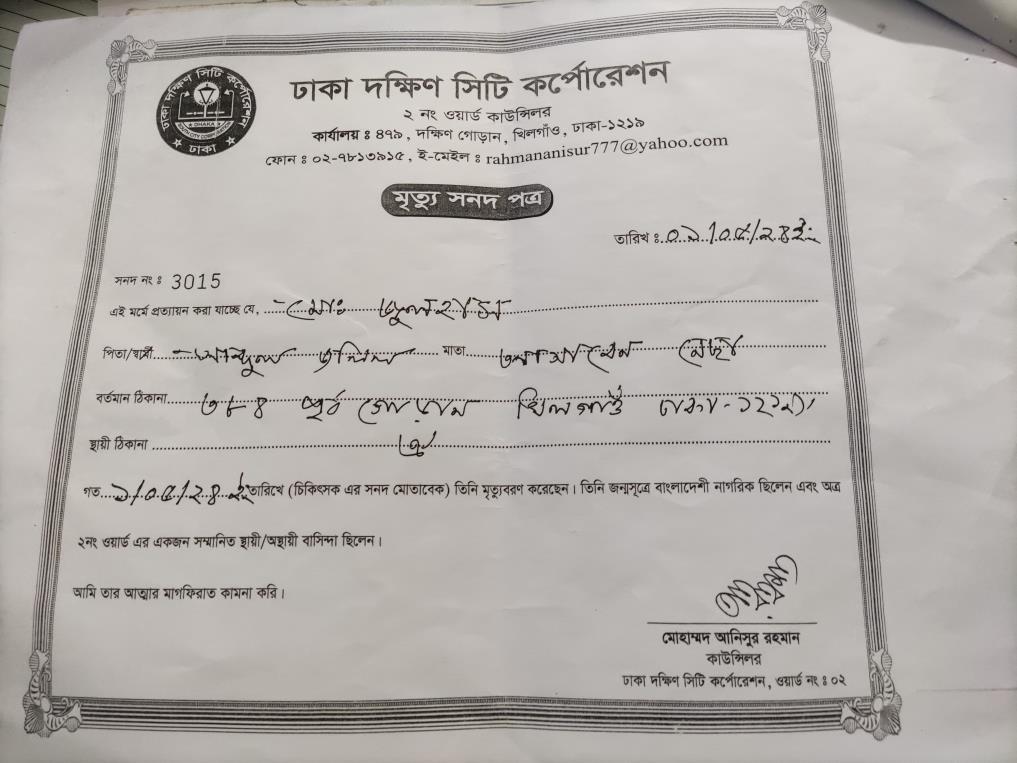 ঢাকা দক্ষিণ সিটি কর্পোরেশন
ঢাকা দক্ষিণ সিটি কর্পোরেশন
২ নং ওয়ার্ড কাউন্সিলর
কার্যালয় ঃ ৪৭৯, দক্ষিণ গোড়ান, খিলগাঁও, ঢাকা-১২১৯
ফোন ঃ ০২-৭৮১৩৯১৫, ই-মেইল ঃ rahmananisur777@yahoo.com
DHAKA
ঢাকা
মৃত্যু সনদ পত্র
তারিখ ঃ
সনদ নং ঃ 3015
এই মর্মে প্রত্যায়ন করা যাচ্ছে যে, মোঃ
পিতা/স্বামী জলিল মাতা
বর্তমান ঠিকানা ৩৮৪ পূর্ব গোড়ান খিলগাঁও ঢাকা-১২১৯
স্থায়ী ঠিকানা ঐ
গত তারিখে (চিকিৎসক এর সনদ মোতাবেক) তিনি মৃত্যুবরণ করেছেন। তিনি জন্মসূত্রে বাংলাদেশী নাগরিক ছিলেন এবং অত্র
২নং ওয়ার্ড এর একজন সম্মানিত স্থায়ী/অস্থায়ী বাসিন্দা ছিলেন।
আমি তার আত্মার মাগফিরাত কামনা করি।
মোহাম্মদ আনিসুর রহমান
কাউন্সিলর
ঢাকা দক্ষিণ সিটি কর্পোরেশন, ওয়ার্ড নং ঃ ০২